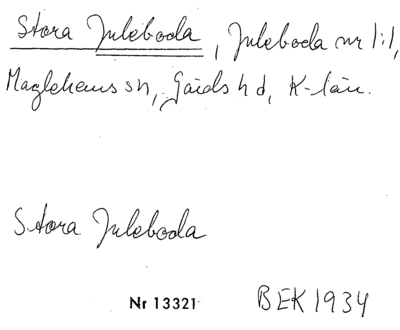 Stora Juleboda, Juleboda nr 1:1,
Maglehems sn, Gärds hd, K-län.
Stora Juleboda
Nr 13321 BEK 1934